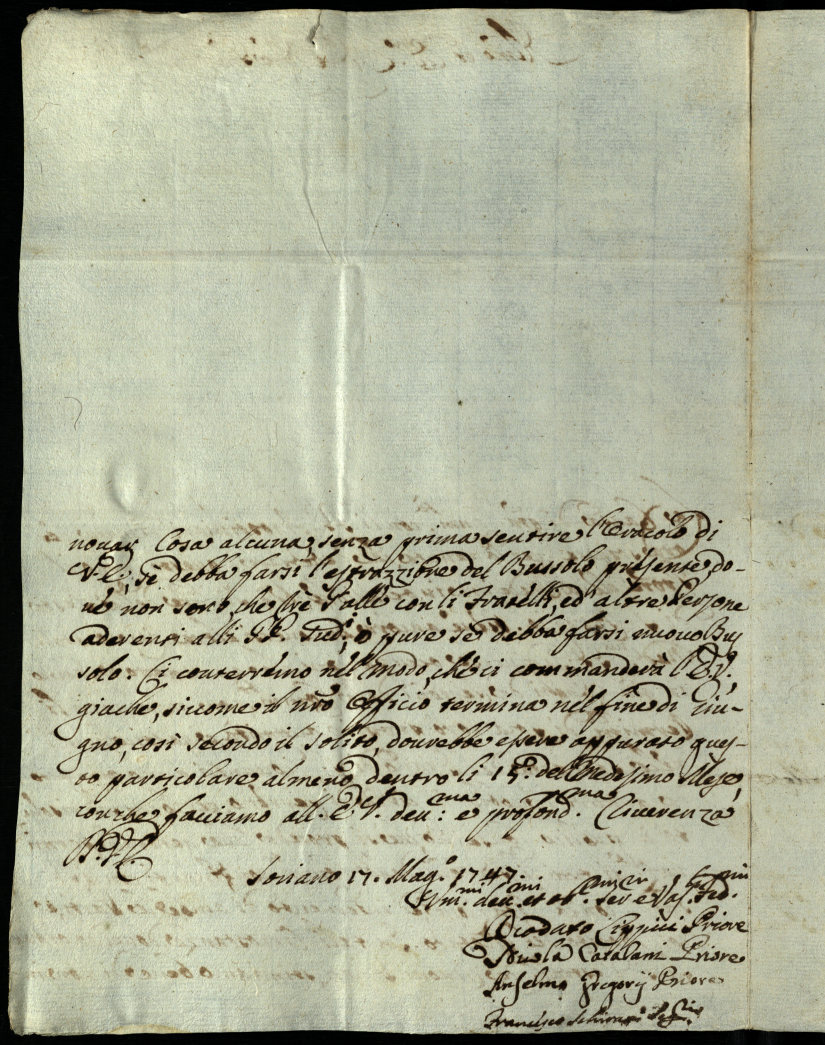 novar cosa alcuna, senza prima sentire l'Oracolo di
V. E., se debba farsi l'estrazzione del Bussolo presente, do-
ve non sono, che trè Palle con li Fratelli, ed altre Persone
aderenti alli ò pure se debba farsi nuovo Bus
solo. Ci conterremo nel modo, che ci commanderà l'E. V.
giache, siccome il nro Officio termina nel fine di Giu-
gno, così secondo il solito, dovrebbe essere appurato ques-
to particolare almeno dentro li 15. del medesimo Mese,
con che facciamo all' E. V. dev:ma e profond.ma riverenza
Soriano 17. Mag.o 1747.
Vm.mi dev.mi et ob.mi ser.ri e Vas.
Diodato Cippicci Priore
Nicola Catalani Priore
Anselmo Gregorij Priore
Francesco